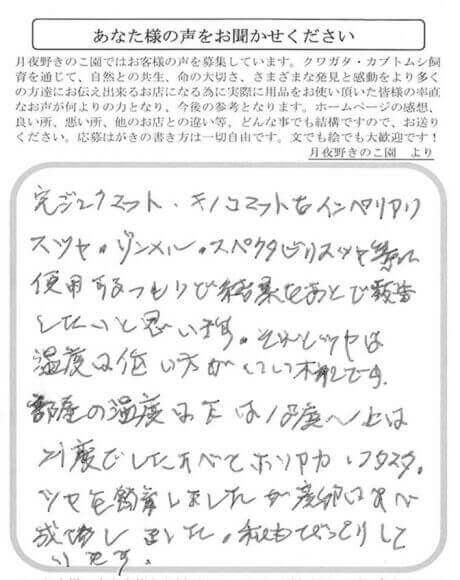 あなた様の声をお聞かせください
月夜野きのこ園ではお客様の声を募集しています。クワガタ・カブトムシ飼
育を通じて、自然との共生、命の大切さ、さまざまな発見と感動をより多く
の方達にお伝え出来るお店になる為に実際に用品をお使い頂いた皆様の率直
なお声が何よりの力となり、今後の参考となります。ホームページの感想、
良い所、悪い所、他のお店との違い等、どんな事でも結構ですので、お送り
ください。応募はがきの書き方は一切自由です。文でも絵でも大歓迎です！
月夜野きのこ園　より
マット、キノコマットをインペリアリ
スツヤ。ゾンメル。スペクタビリスツヤ等に
使用するつもりで結果をあとで報告
したいと思います。それとツヤは
温度は低い方が
部屋の温度は下は18度～上は
21度でしたすべてホソアカ フタマタ。
ツヤを飼育しましたが産卵はすべ
成功しました。私もびっくりして
います。